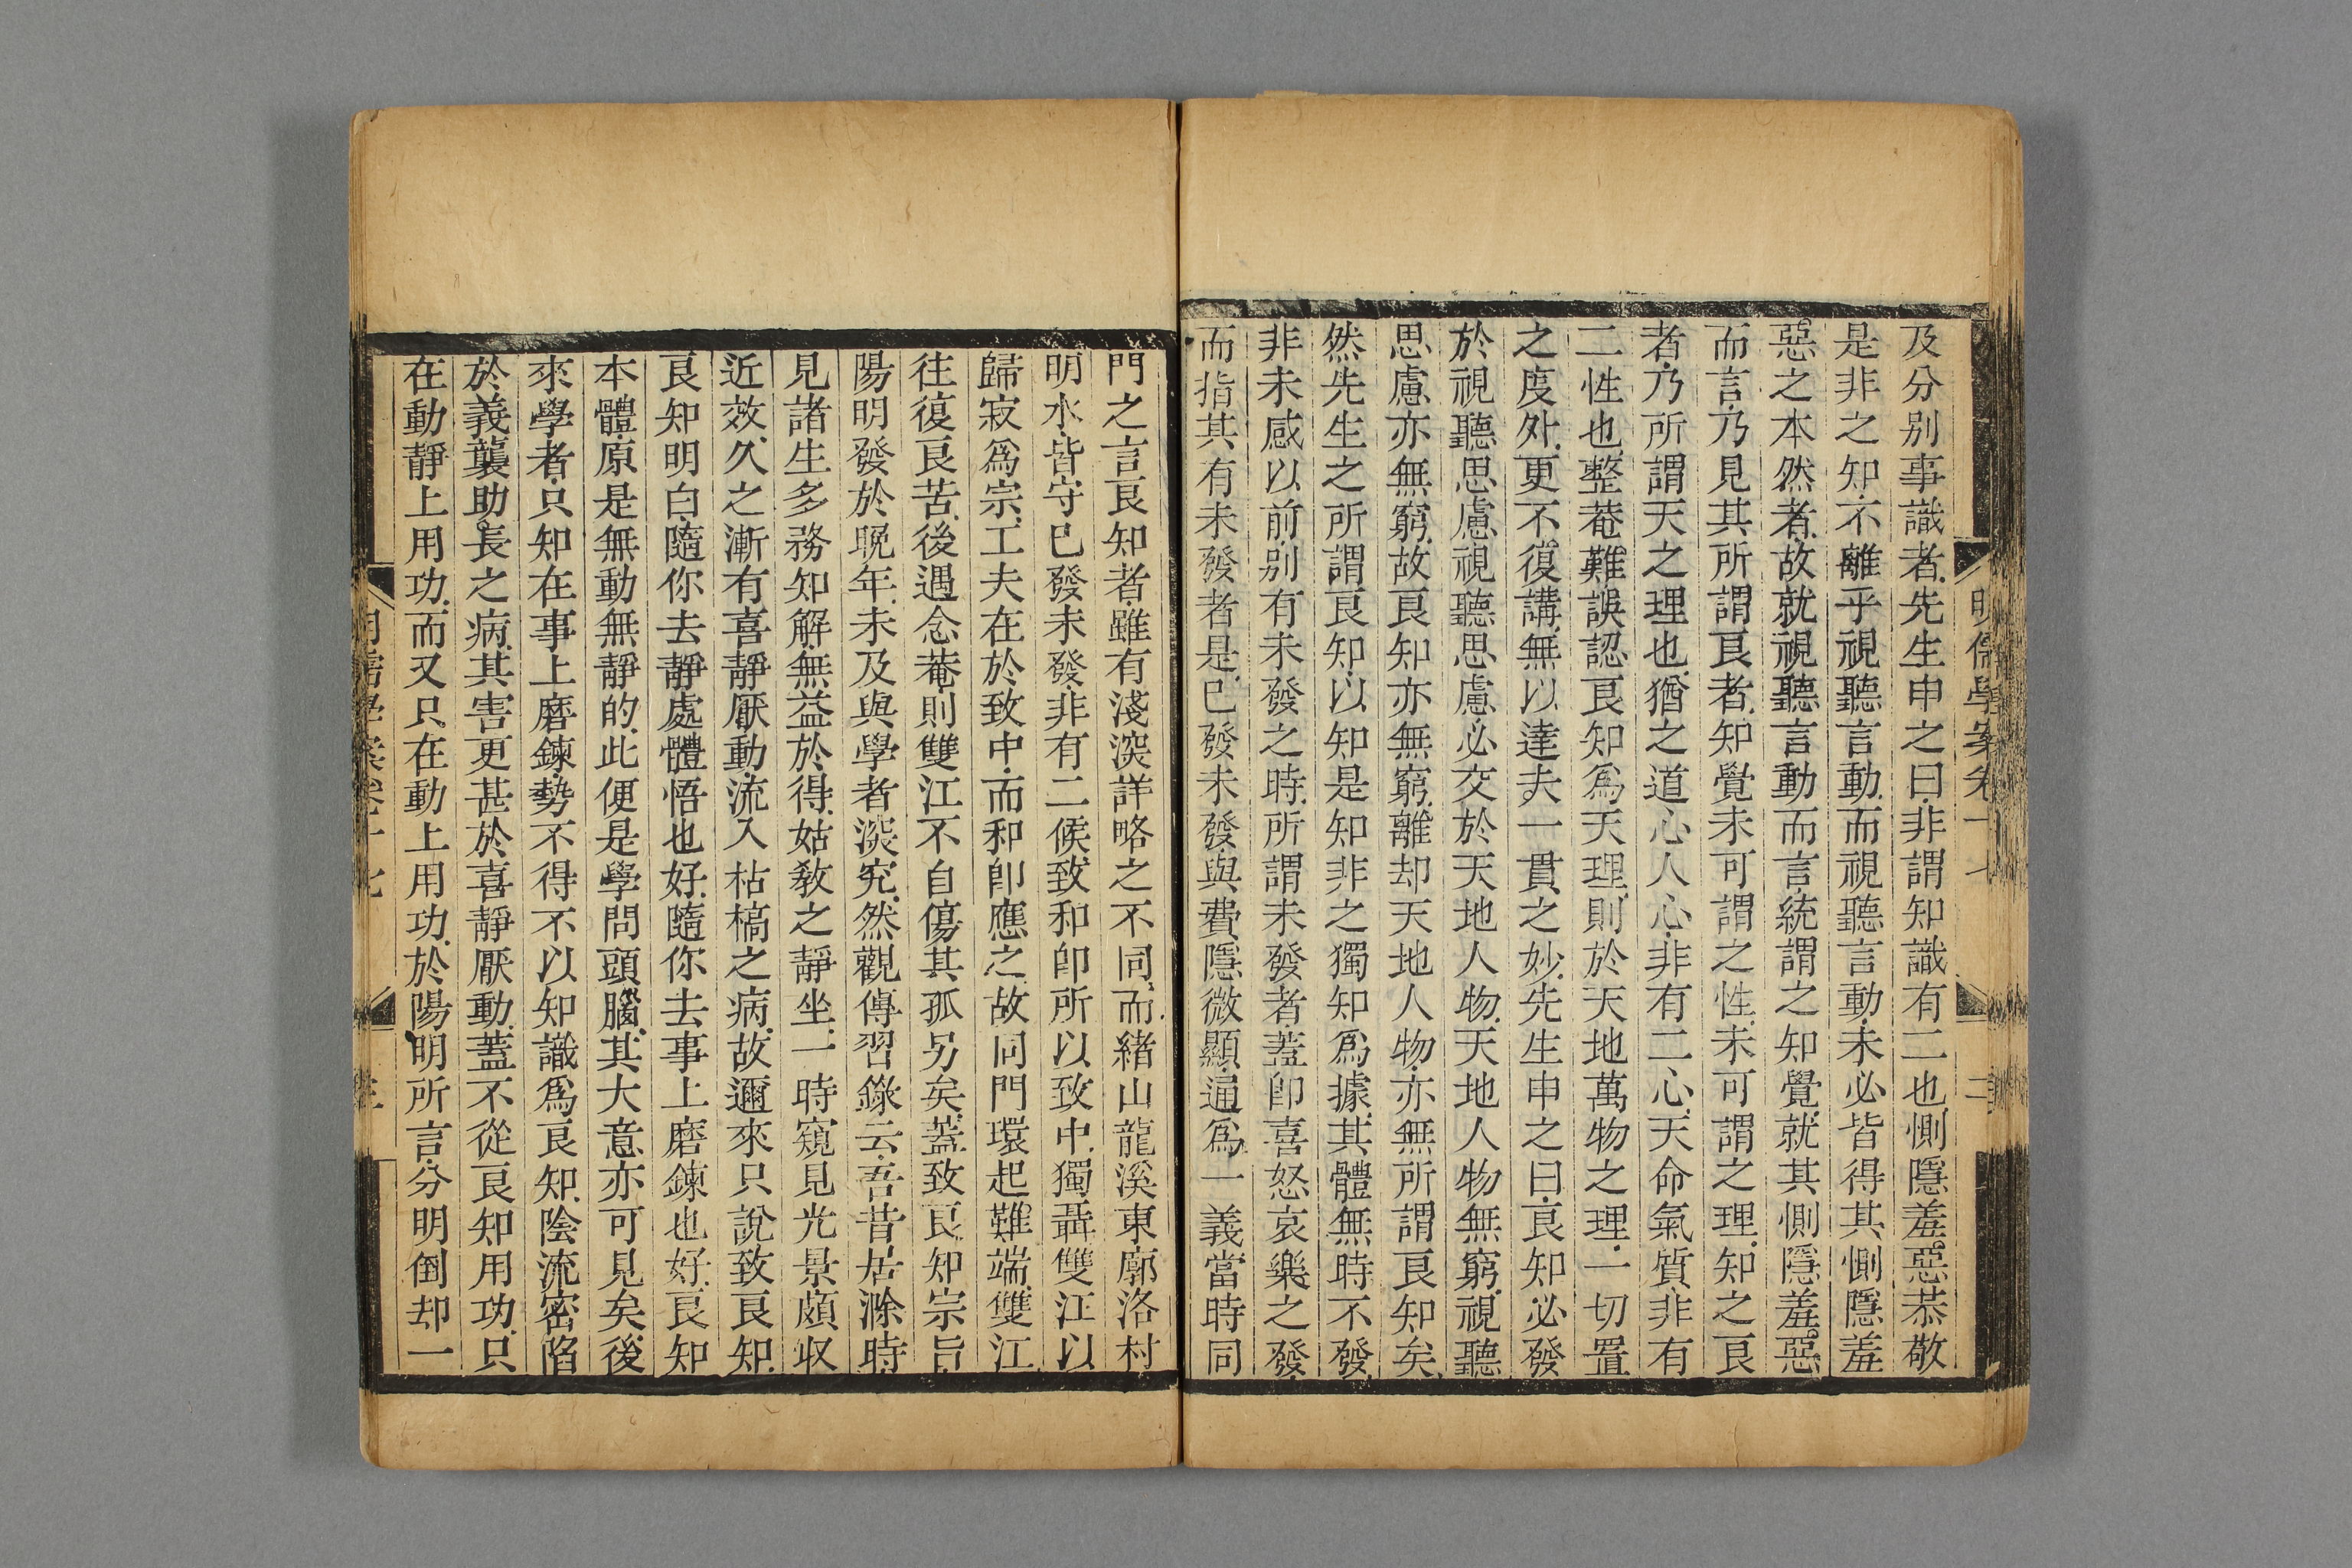 明儒學案卷十七
二
及分别事識者先生申之曰非謂知識有二也惻隱羞惡恭敬
是非之知不離乎視聽言動而視聽言動未必皆得其惻隱羞
惡之本然者故就視聽言動而言統謂之知覺就其惻隱羞惡
而言乃見其所謂良者知覺未可謂之性未可謂之理知之良
者乃所謂天之理也猶之道心人心非有二心天命氣質非有
二性也整菴難誤認良知爲天理則於天地萬物之理一切置
之度外更不復講無以達夫一貫之妙先生申之曰良知必發
於視聽思慮視聽思慮必交於天地人物天地人物無窮視聽
思慮亦無窮故良知亦無窮離却天地人物亦無所謂良知矣
然先生之所謂良知以知是知非之獨知爲據其體無時不發
非未感以前别有未發之時所謂未發者蓋卽喜怒哀樂之發
而指其有未發者是已發未發與費隱微顯通爲一義當時同
門之言良知者雖有淺深詳略之不同而緒山龍溪東廓洛村
明水皆守已發未發非有二候致和卽所以致中獨聶雙江以
歸寂爲宗工夫在於致中而和卽應之故同門環起難端雙江
往復良苦後遇念菴則雙江不自傷其孤另矣蓋致良知宗旨
陽明發於晚年未及與學者深究然觀傳習錄云吾昔居滁時
見諸生多務知解無益於得姑教之靜坐一時窺見光景頗収
近效久之漸有喜靜厭動流入枯槁之病故邇來只說致良知
良知明白隨你去靜處體悟也好隨你去事上磨鍊也好良知
本體原是無動無靜的此便是學問頭腦其大意亦可見矣後
來學者只知在事上磨鍊勢不得不以知識爲良知陰流密陷
於義襲助長之病其害更甚於喜靜厭動蓋不從良知用功只
在動靜上用功而又只在動上用功於陽明所言分明倒却一
明儒學案卷十七
三